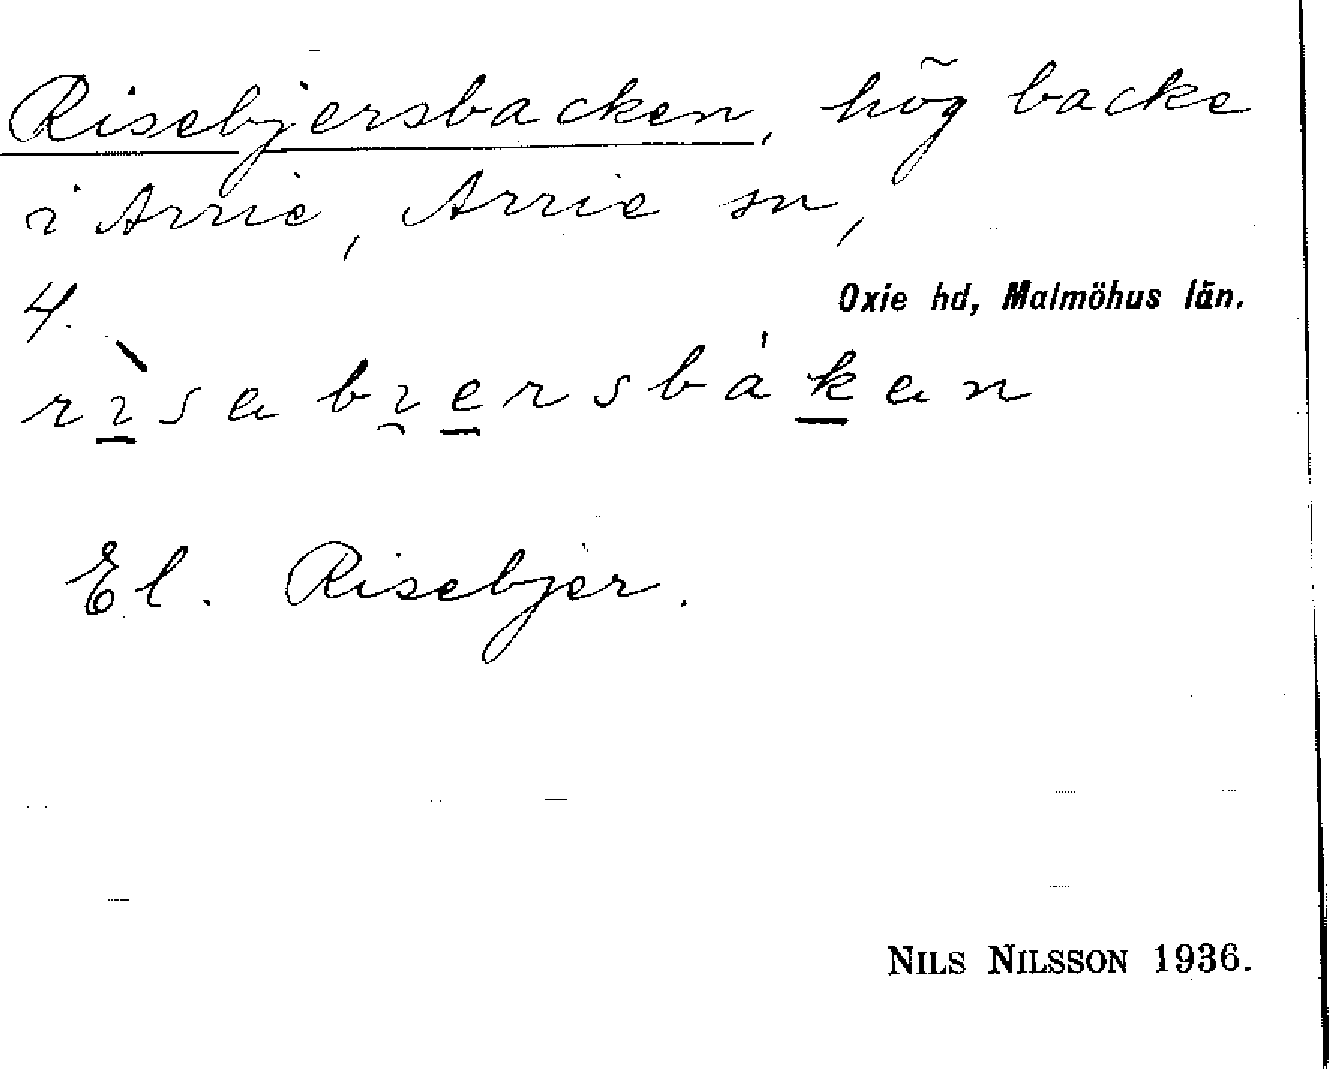 Risebjersbacken, hög backe
i Arrie, Arrie sn,
4.
Oxie hd, Malmöhus län.
El. Risebjer.
NILS NILSSON 1936.